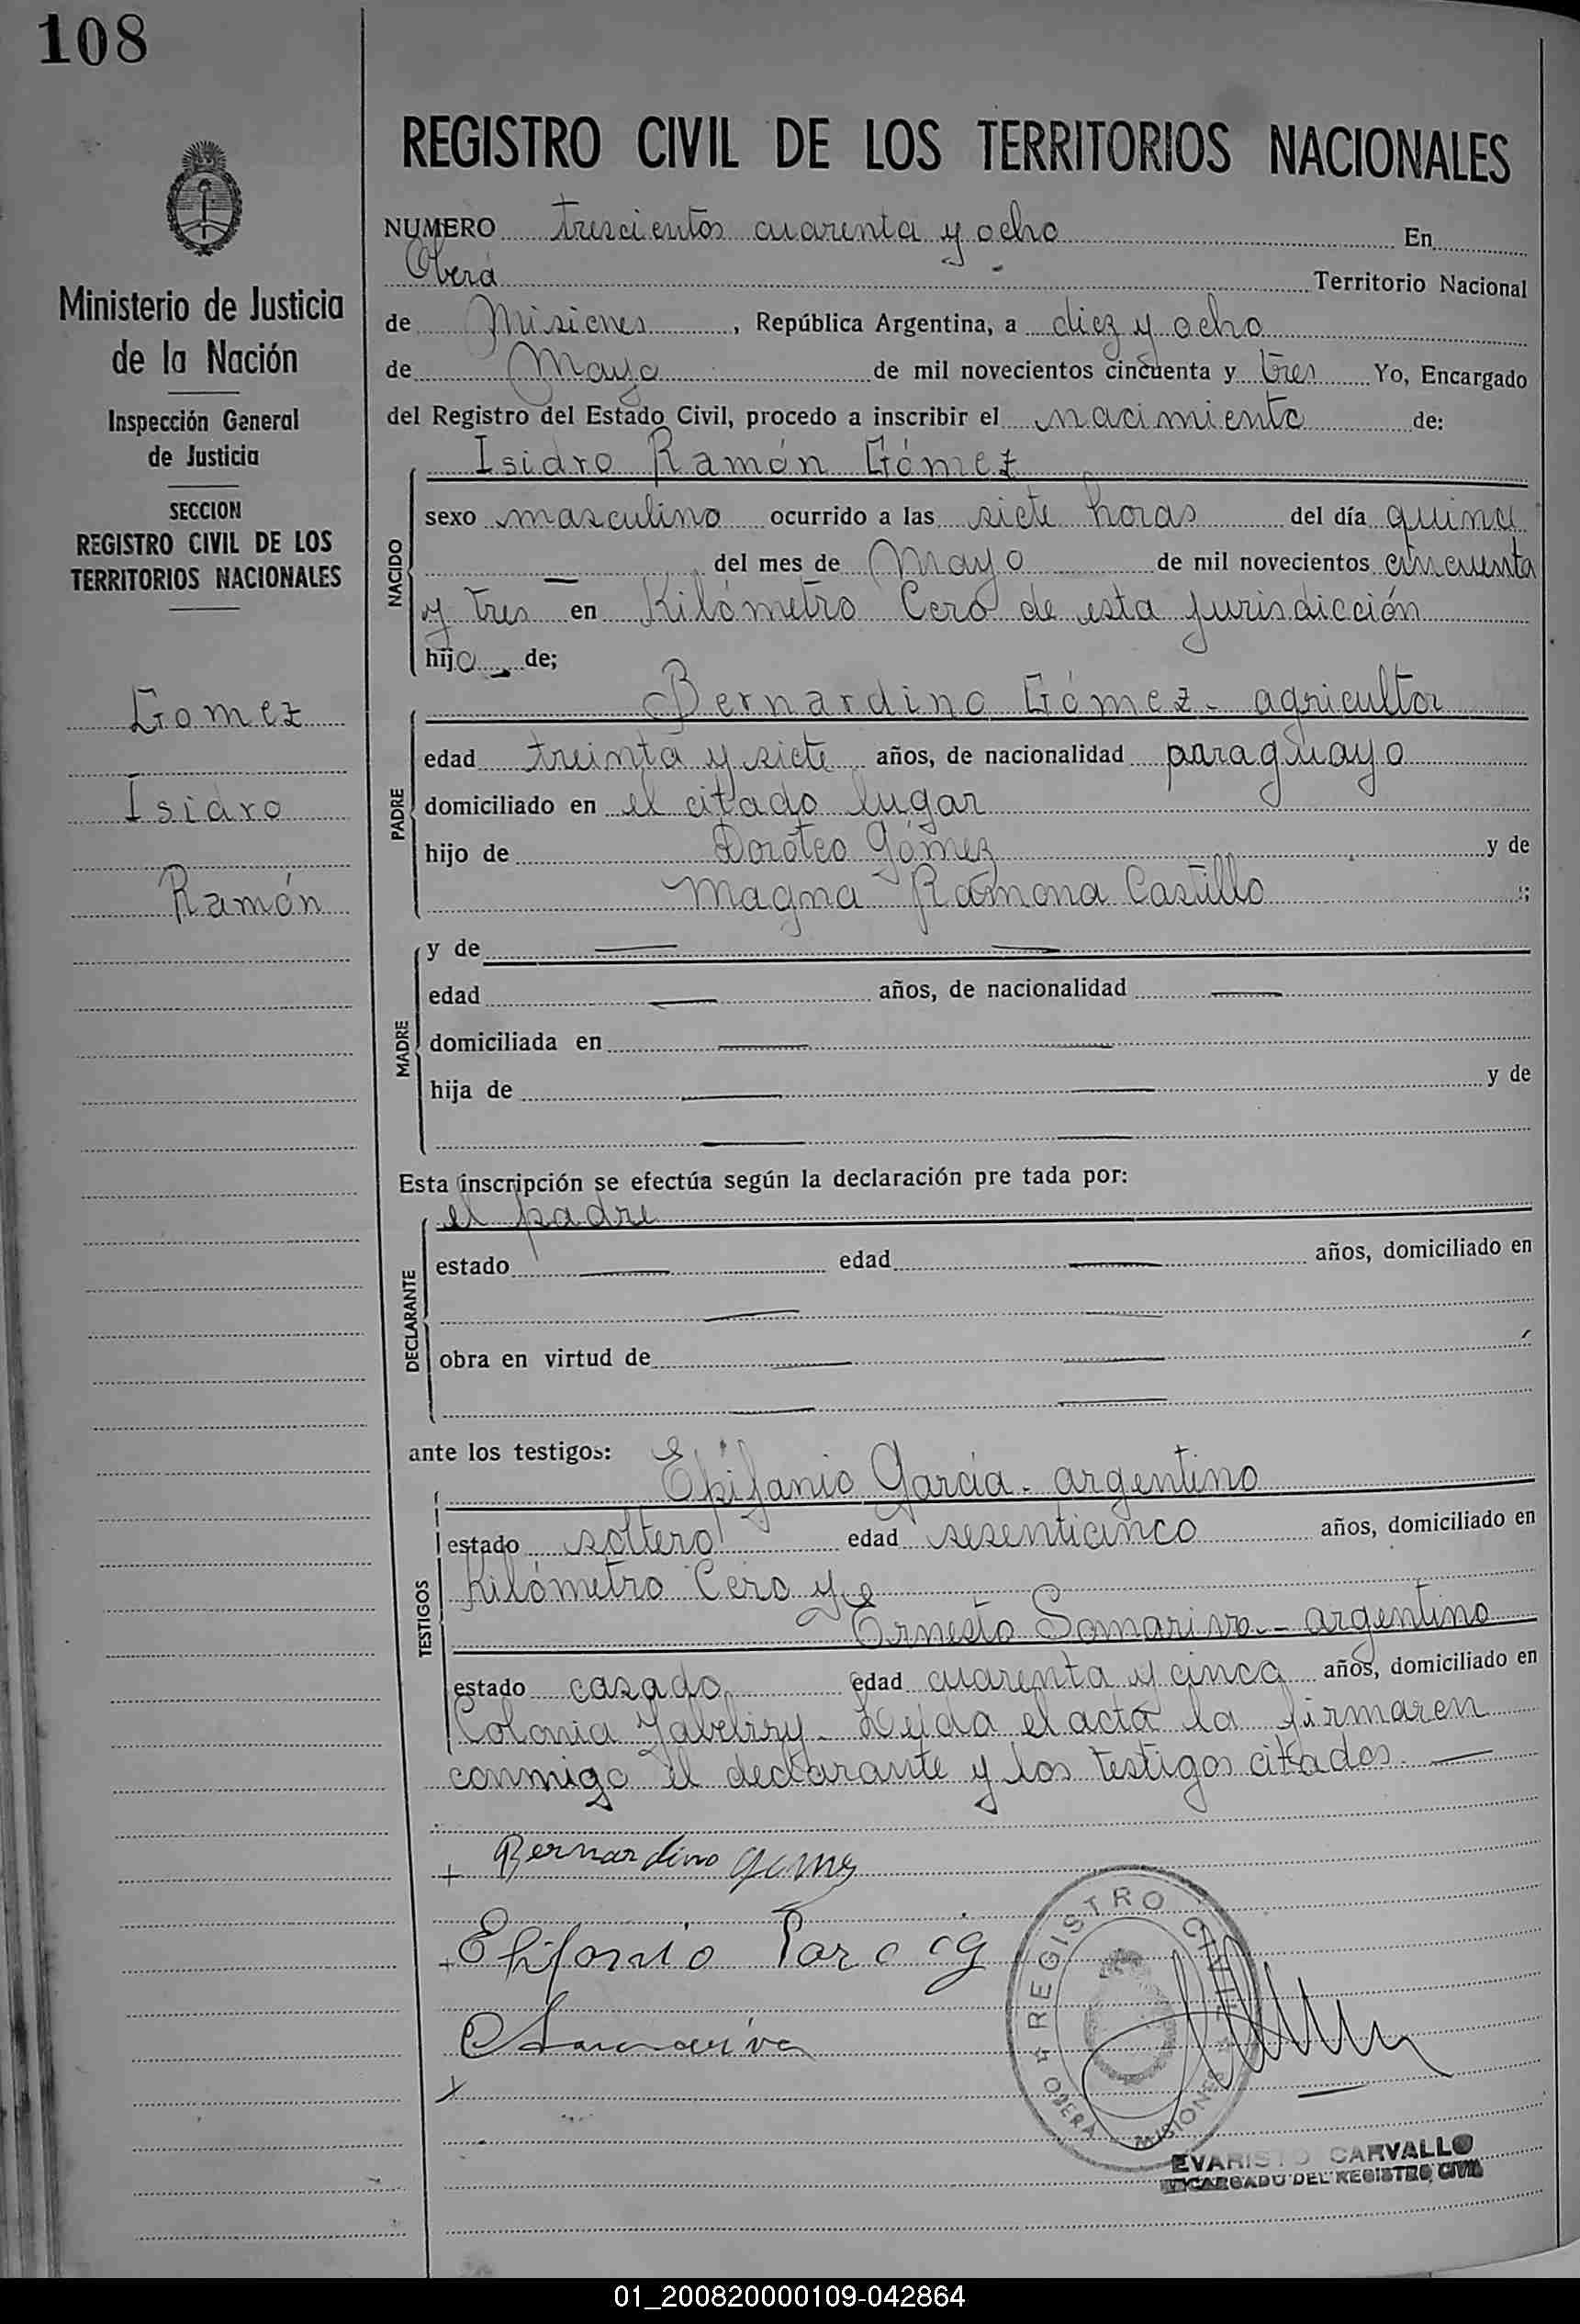 108
REGISTRO CIVIL DE LOS TERRITORIOS NACIONALES
Ministerio de Justicia
de la Nación
Inspección General
de Justicia
SECCION
REGISTRO CIVIL DE LOS
TERRITORIOS NACIONALES
Gomez
Isidro
Ramón
NUMERO trescientos cuarenta y ocho En
Oberá Territorio Nacional
de Misiones, República Argentina, a diez y ocho
de Mayo de mil novecientos cincuenta y tres Yo, Encargado
del Registro del Estado Civil, procedo a inscribir el nacimiento de:
Isidro Ramón Gómez
NACIDO
sexo masculino ocurrido a las siete horas del día quince
del mes de Mayo de mil novecientos cincuenta
y tres en Kilómetro Cero de esta jurisdicción
hijo de;
Bernardino Gómez - agricultor
PADRE
edad treinta y siete años, de nacionalidad paraguayo
domiciliado en el citado lugar
hijo de Doroteo Gómez y de
Magna Ramona Castillo ;
MADRE
y de
edad años, de nacionalidad
domiciliada en
hija de y de
Esta inscripción se efectúa según la declaración pre tada por:
el padre
DECLARANTE
estado edad años, domiciliado en
obra en virtud de
ante los testigos:
Epifanio García - argentino
TESTIGOS
estado soltero edad sesenticinco años, domiciliado en
Kilómetro Cero y
Ernesto Somariva - argentino
estado casado edad cuarenta y cinco años, domiciliado en
Colonia Yabebiry - Leída el acta la firmaren
conmigo el declarante y los testigos citados. —
Bernardino Gomez
Epifanio Garcia
E Somariva
REGISTRO CIVIL
OBERA MISIONES
EVARISTO CARVALLO
ENCARGADO DEL REGISTRO CIVIL
01_200820000109-042864